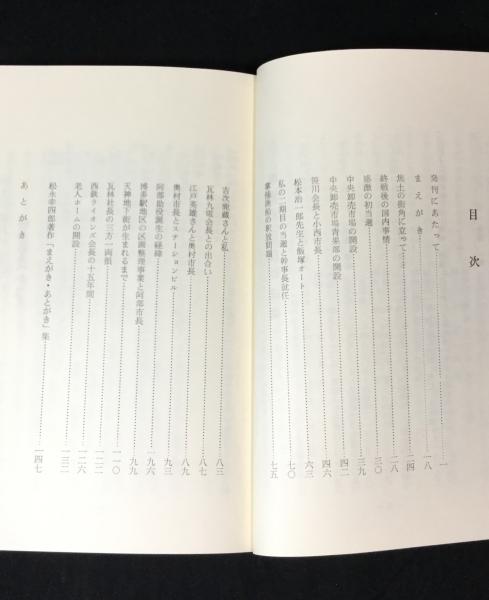 目次
発刊にあたって……一
まえがき……一八
焦土の街角に立って……二四
終戦後の国内事情……二八
感激の初当選……三〇
中央卸売市場の開設……三九
中央卸売市場青果部の開設……四二
笹川会長と小西市長……四六
松本治一郎先生と飯塚オート……六三
私の二期目の当選と幹事長就任……七〇
拿捕漁船の釈放問題……七五
吉次鹿蔵さんと私……八三
瓦林九電会長との出合い……八七
江戸英雄さんと奥村市長……八九
奥村市長とステーションビル……九三
阿部助役誕生の経緯……九六
博多駅地区の区画整理事業と阿部市長……九九
天神地下街が生まれるまで……一一〇
瓦林社長の三方一両損……一二二
西鉄ライオンズ会長の十五年間……一二六
老人ホームの開設……一三二
松永幸四郎著作「まえがき・あとがき」集……一四七
あとがき